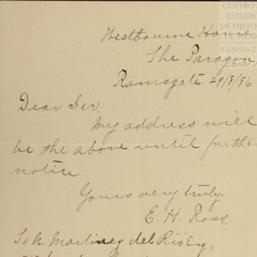 CENTRO
ESTUDI
DE HISTO
FUNDAC
Westbourne House
The Paragon
Ramsgate 29/8/86
Dear Sir
My address will
be the above until further
notice
Yours very truly,
E. H. Ross
Martinez del Rio Esq,